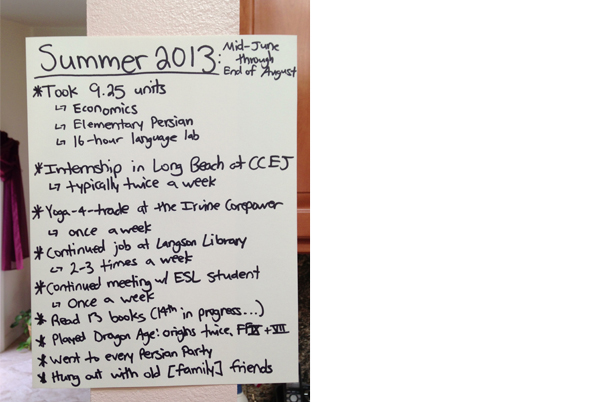 Summer 2013: Mid-June
through
End of August
*Took 9.25 units
↳ Economics
↳ Elementary Persian
↳ 16-hour language lab
*Internship in Long Beach at CCEJ
↳ typically twice a week
*Yoga-4-trade at the Irvine Corepower
↳ once a week
*Continued job at Langson Library
↳ 2-3 times a week
*Continued meeting w/ ESL student
↳ Once a week
* Read 13 books (14th in progress...)
* Played Dragon Age: origins twice, + VII
* Went to every Persian Party
* Hung out with old [family] friends